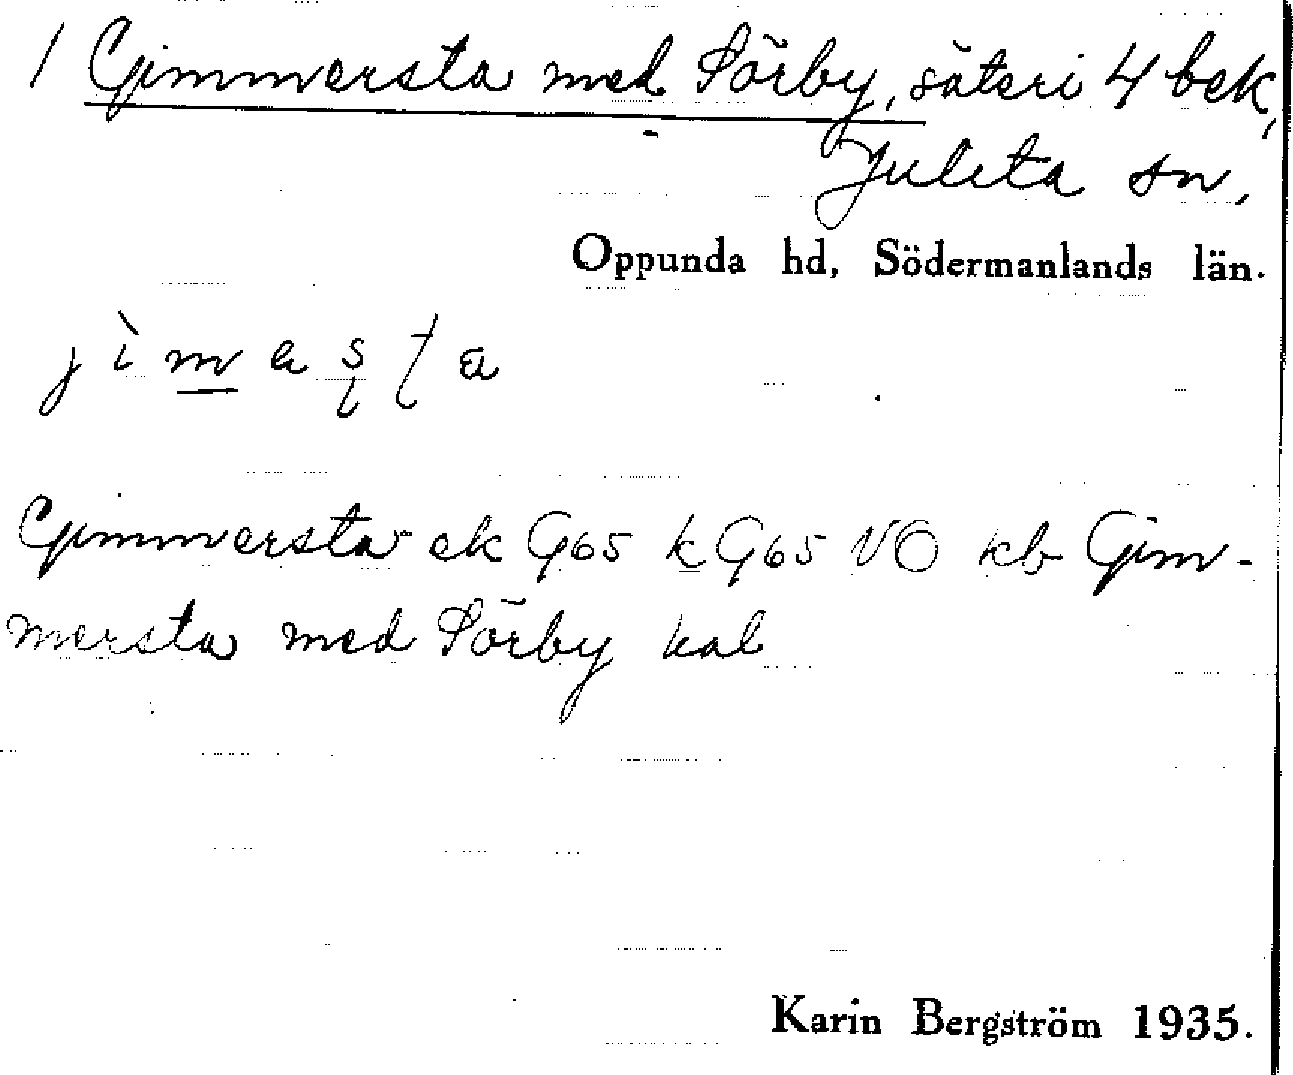 1 Gimmersta med Sörby, säteri 4 bek,
Juleta sn,
Oppunda hd, Södermanlands län.
Gimmersta ek G65 k G65 VO kb Gim-
mersta med Sörby kal
Karin Bergström 1935.